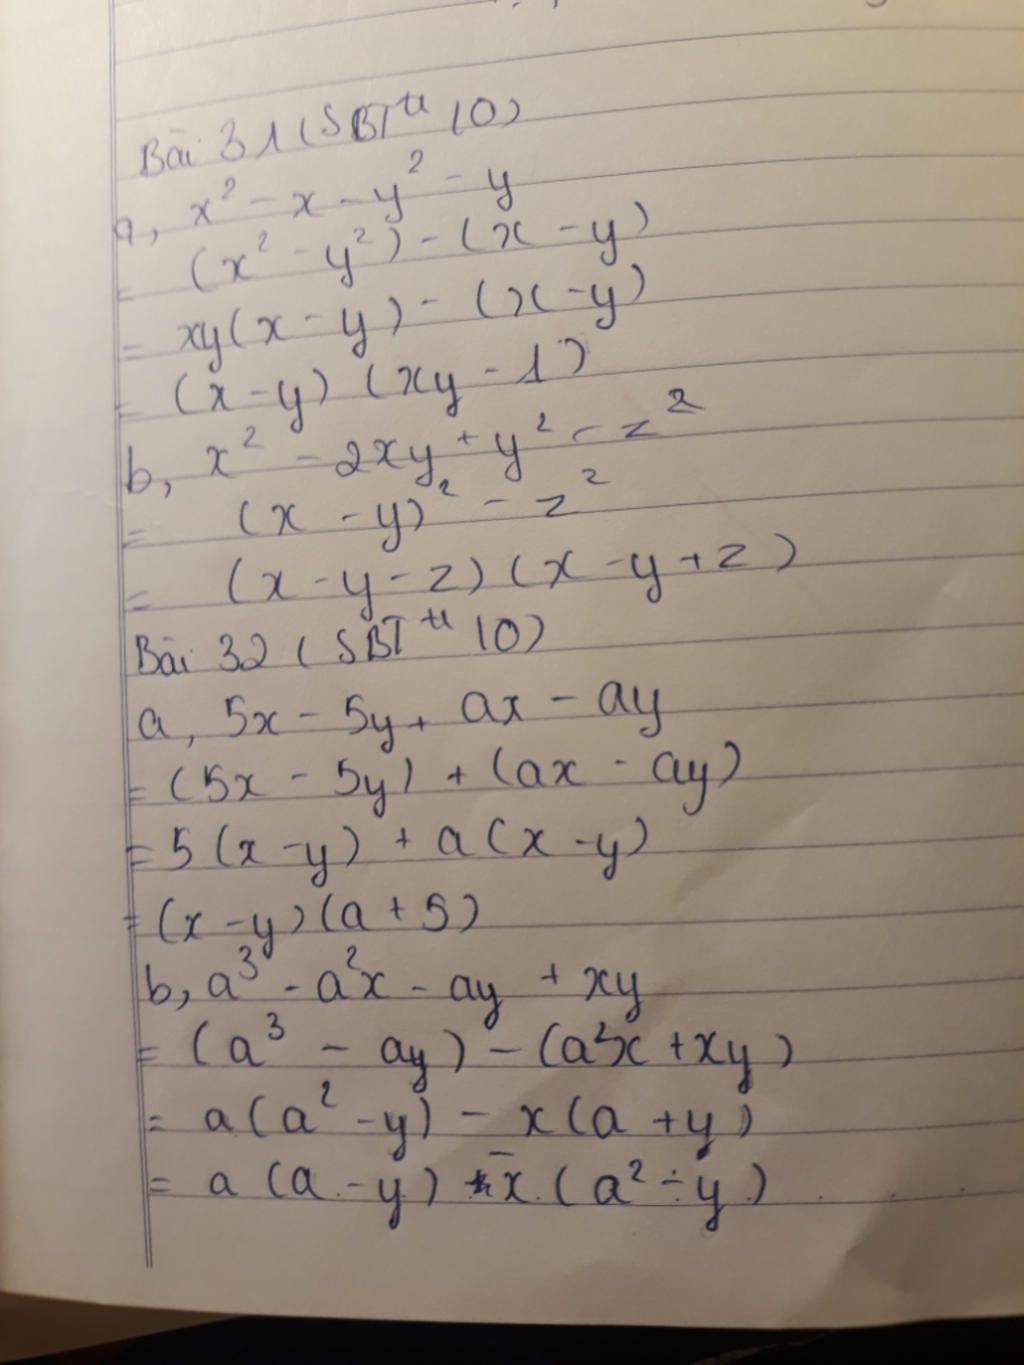 Bài 31 (SBT tr 10)
a, x² - x - y² - y
= (x² - y²) - (x - y)
= xy(x - y) - (x - y)
= (x - y) (xy - 1)
b, x² - 2xy + y² - z²
= (x - y)² - z²
= (x - y - z) (x - y + z)
Bài 32 (SBT tr 10)
a, 5x - 5y + ax - ay
= (5x - 5y) + (ax - ay)
= 5 (x - y) + a (x - y)
= (x - y) (a + 5)
b, a³ - a²x - ay + xy
= (a³ - ay) - (a²x + xy)
= a (a² - y) - x (a + y)
= a (a - y) - x (a² - y)